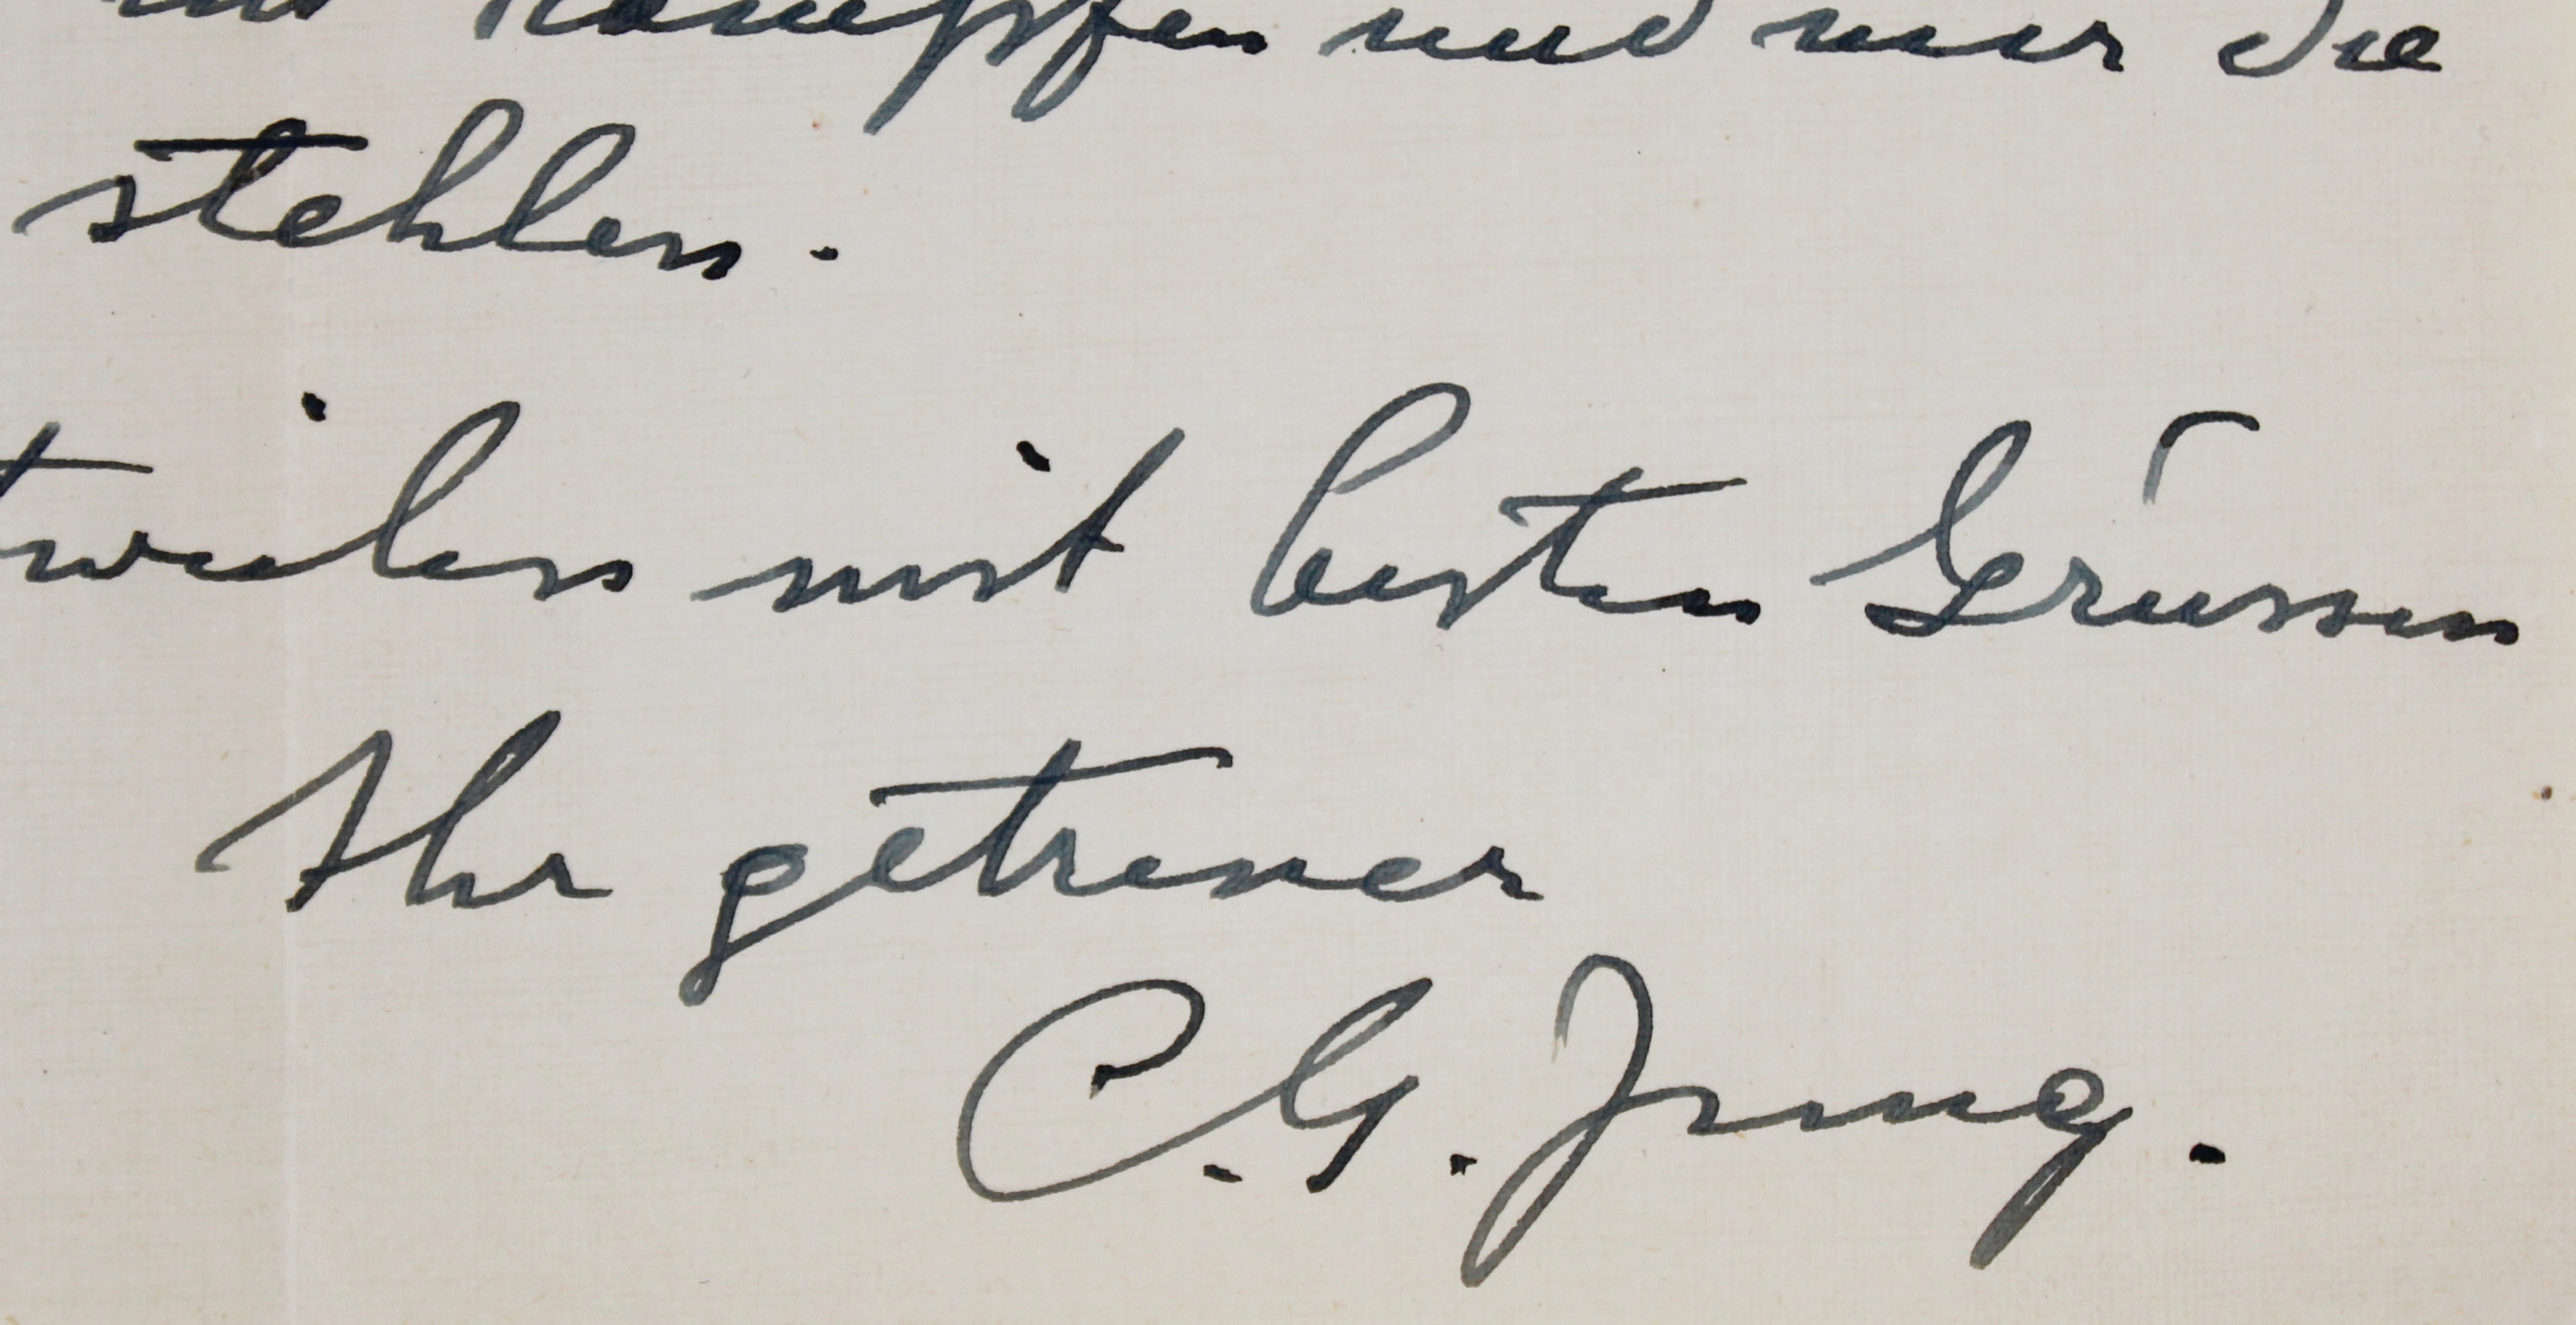 kämpfen und mir die
stehlen.
weilen mit besten Grüssen
Ihr getreuer
C.G. Jung.